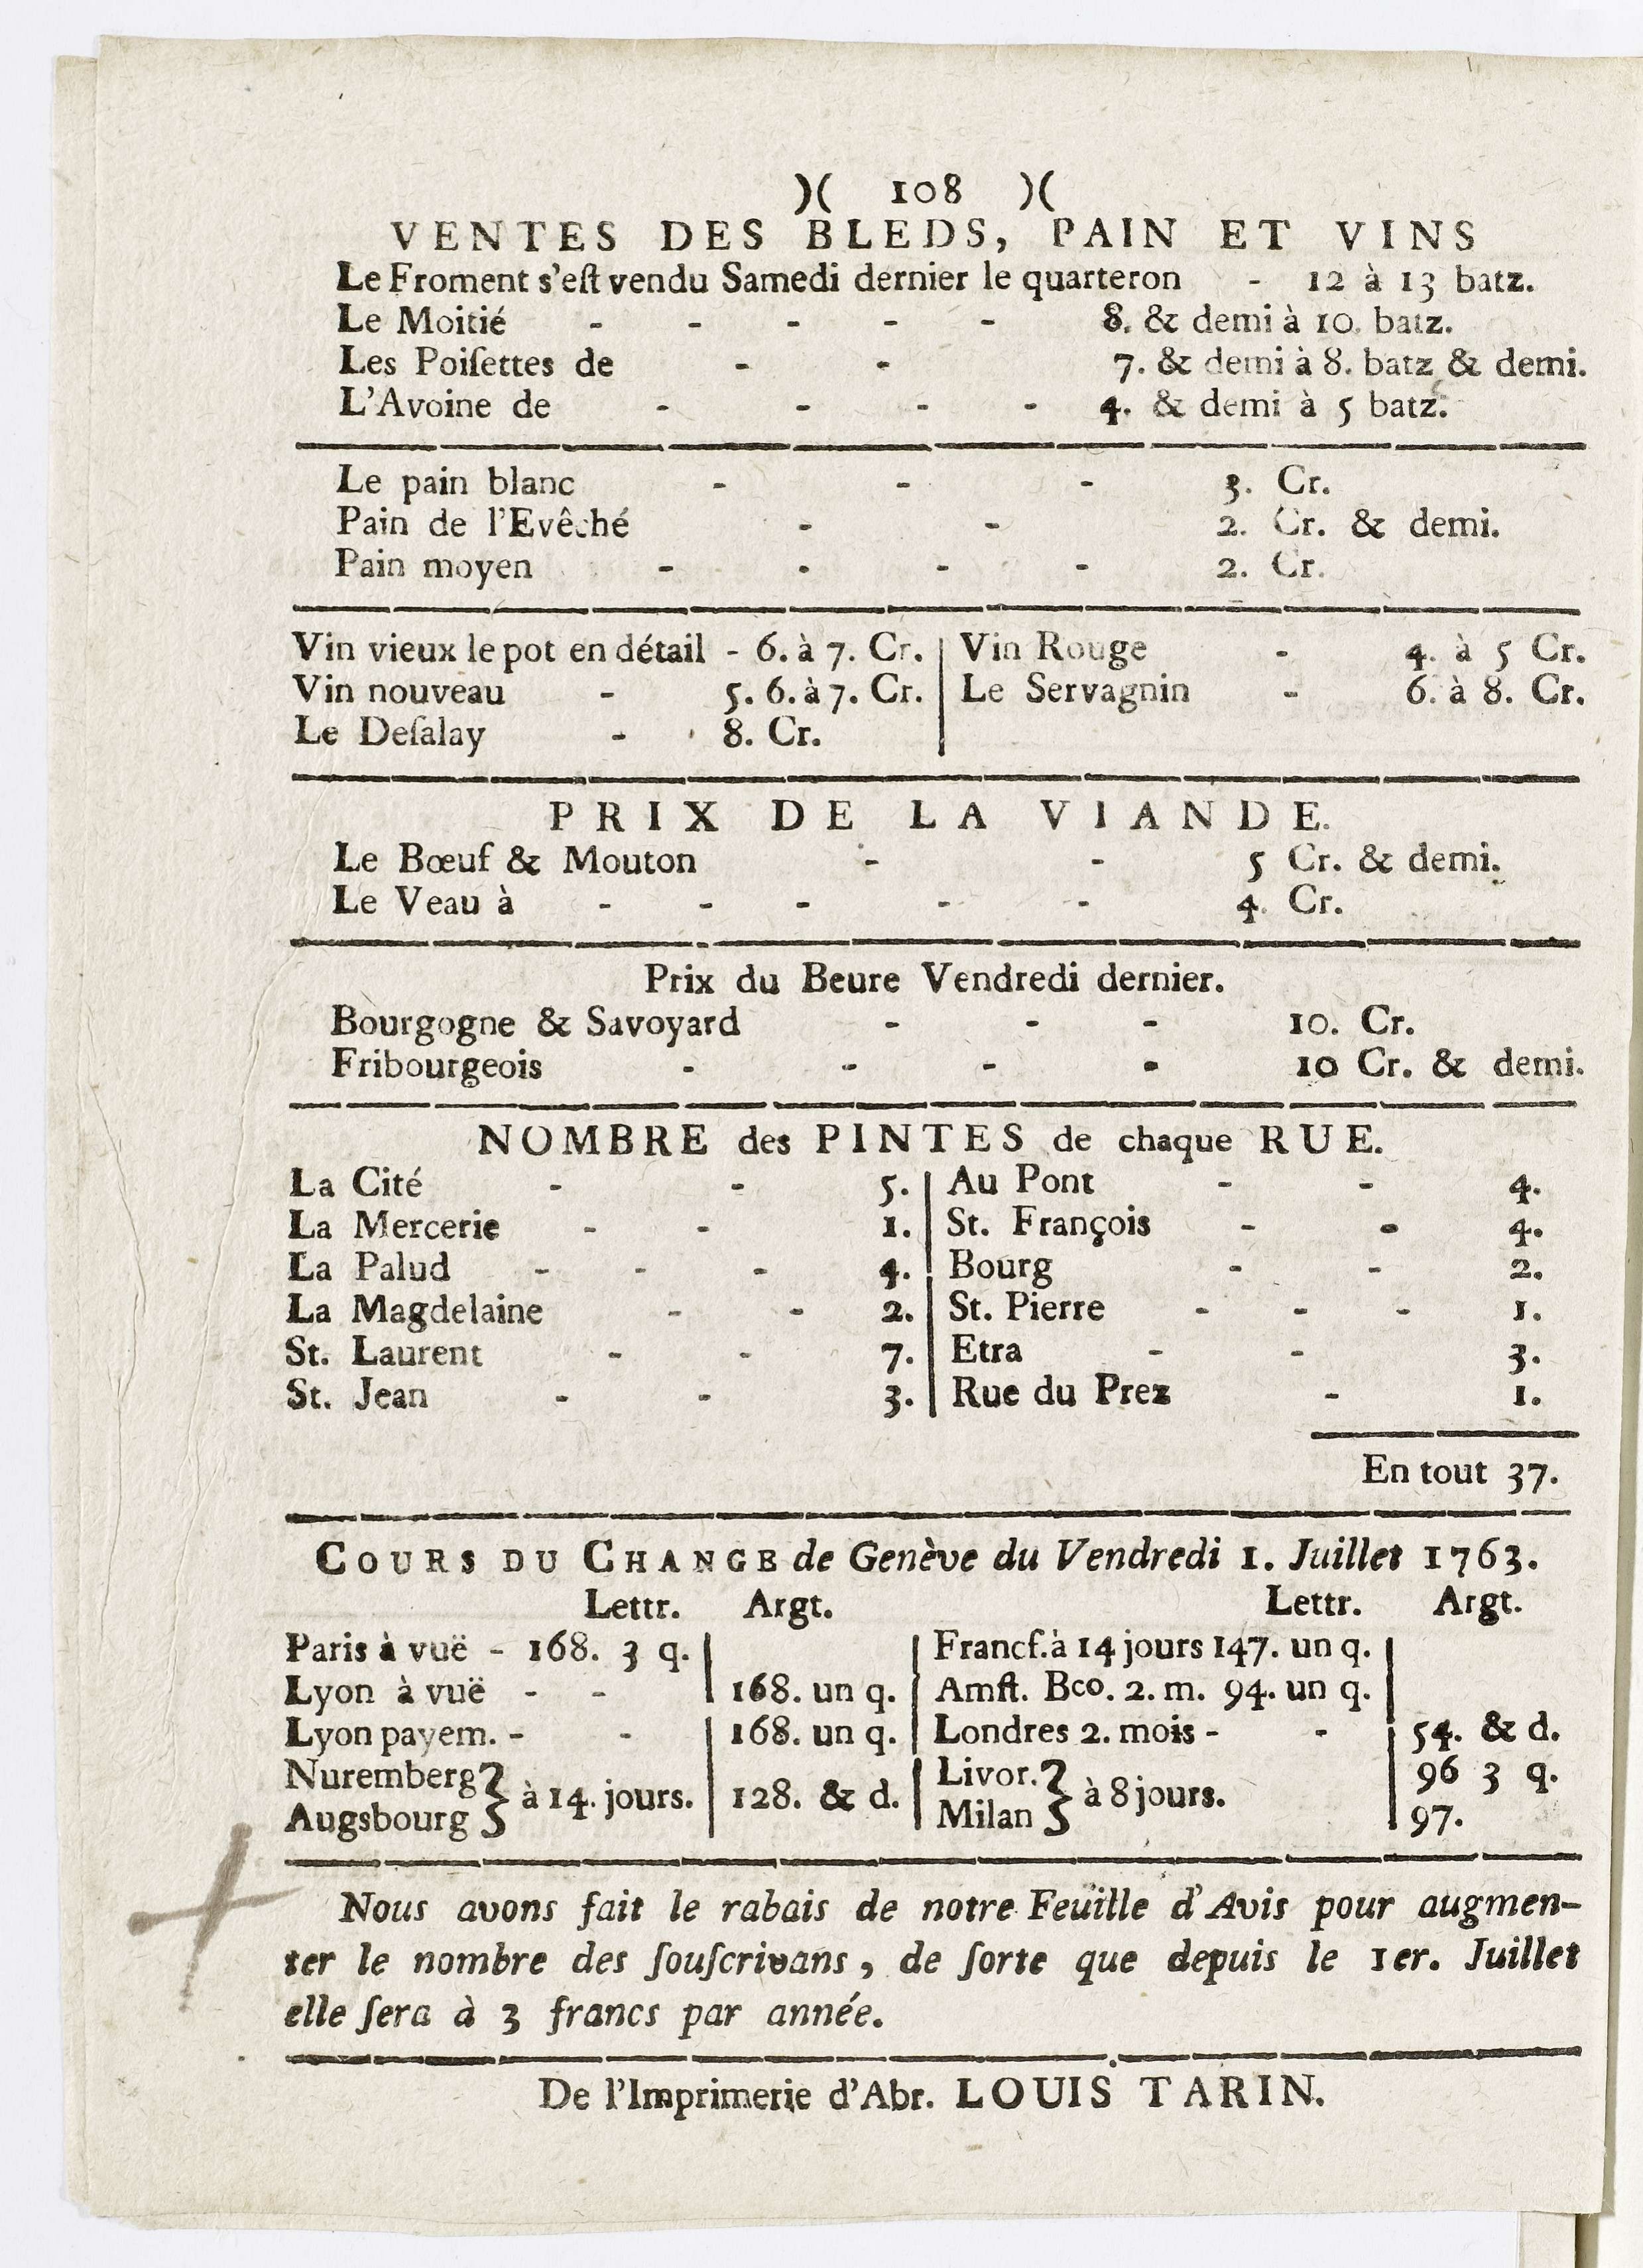 )( 108 )(
VENTES DES BLEDS, PAIN ET VINS
Le Froment s'eſt vendu Samedi dernier le quarteron - 12 à 13 batz.
Le Moitié - - - - - 8. & demi à 10. batz.
Les Poiſettes de - - 7. & demi à 8. batz & demi.
L'Avoine de - - - - 4. & demi à 5 batz.
Le pain blanc - - - 3. Cr.
Pain de l'Evêché - - 2. Cr. & demi.
Pain moyen - - - - 2. Cr.
Vin vieux le pot en détail - 6. à 7. Cr. | Vin Rouge - 4. à 5 Cr.
Vin nouveau - 5. 6. à 7. Cr. | Le Servagnin - 6. à 8. Cr.
Le Deſalay - 8. Cr.
PRIX DE LA VIANDE.
Le Bœuf & Mouton - - 5 Cr. & demi.
Le Veau à - - - - - 4. Cr.
Prix du Beure Vendredi dernier.
Bourgogne & Savoyard - - - 10. Cr.
Fribourgeois - - - - 10 Cr. & demi.
NOMBRE des PINTES de chaque RUE.
La Cité - - 5. | Au Pont - - 4.
La Mercerie - - 1. | St. François - - 4.
La Palud - - - 4. | Bourg - - 2.
La Magdelaine - - 2. | St. Pierre - - - 1.
St. Laurent - - 7. | Etra - - 3.
St. Jean - - 3. | Rue du Prez - 1.
En tout 37.
COURS DU CHANGE de Genève du Vendredi 1. Juillet 1763.
Lettr. Argt. Lettr. Argt.
Paris à vuë - 168. 3 q. | | Francf. à 14 jours 147. un q. |
Lyon à vuë - - | 168. un q. | Amſt. Bco. 2. m. 94. un q. |
Lyon payem. - - | 168. un q. | Londres 2. mois - - | 54. & d.
Nuremberg } à 14. jours. | 128. & d. | Livor. } à 8 jours. | 96 3 q.
Augsbourg } Milan } | 97.
Nous avons fait le rabais de notre Feuille d'Avis pour augmen-
ter le nombre des ſouſcrivans, de ſorte que depuis le 1er. Juillet
elle ſera à 3 francs par année.
De l'Imprimerie d'Abr. LOUIS TARIN.